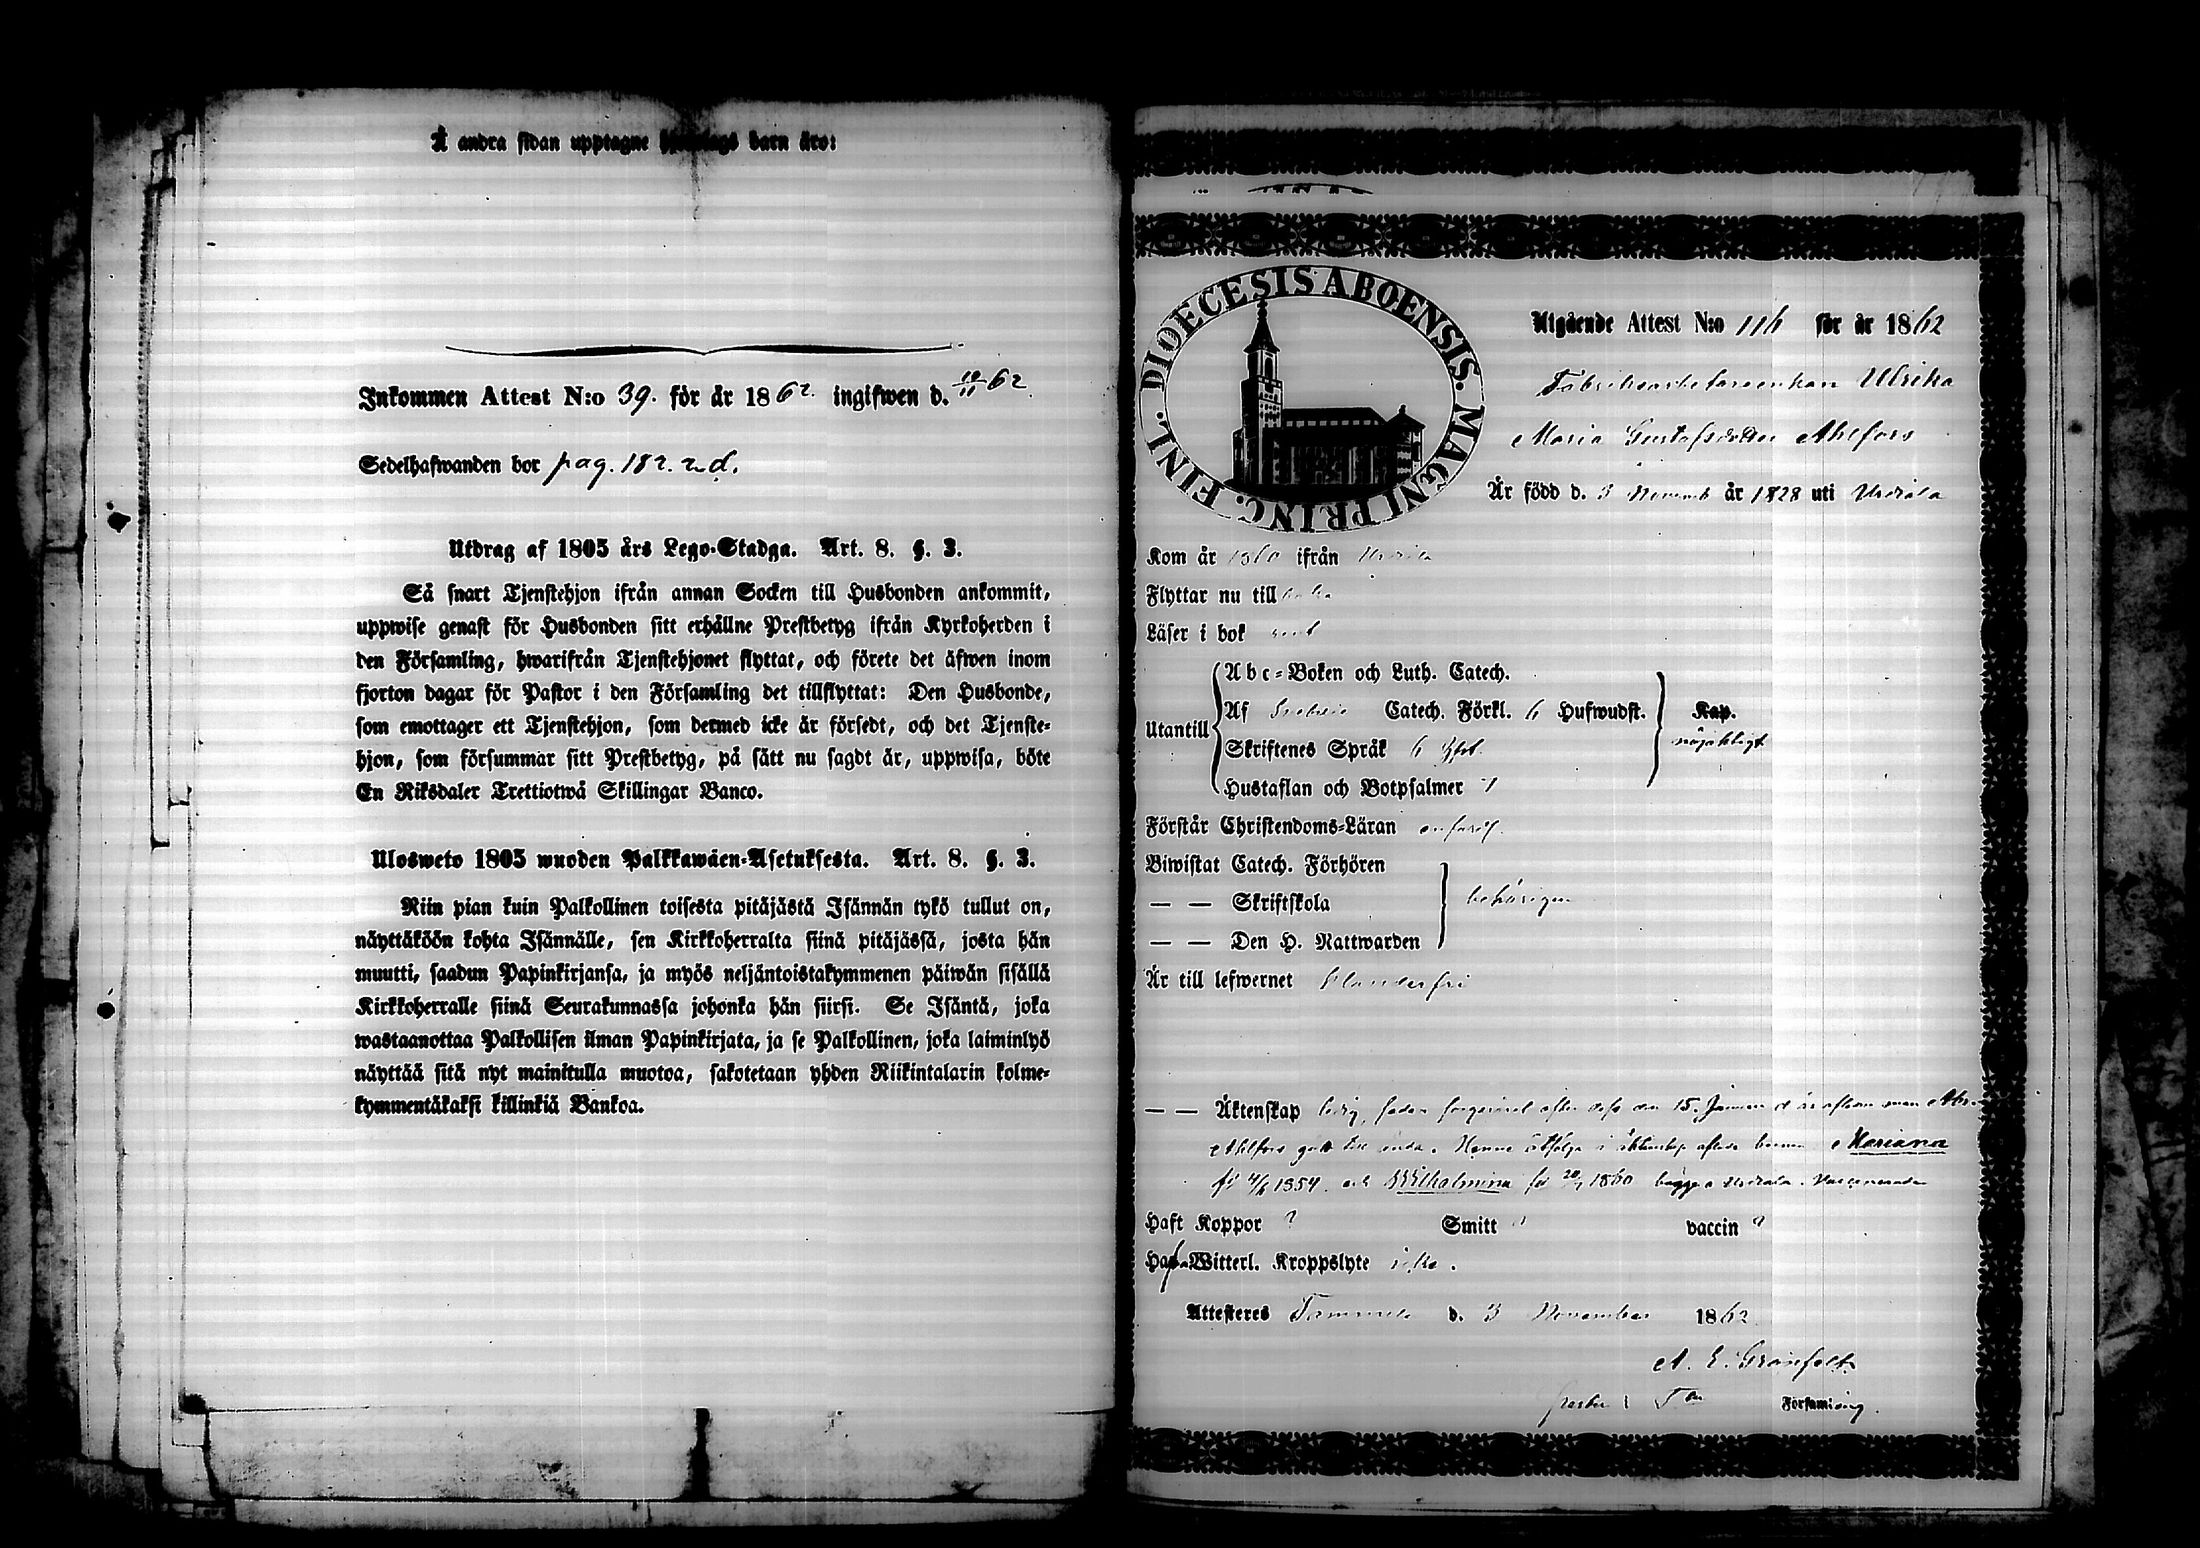 Å andra sidan upptagne barn äro:
Inkommen Attest N:o 39. för år 1862. ingifwen d. 10/11 62.
Sedelhafwanden bor pag. 182. n d.
Utdrag af 1805 års Lego-Stadga. Art. 8. §. 3.
Så snart Tjenstehjon ifrån annan Socken till Husbonden ankommit,
uppwise genast för Husbonden sitt erhållne Prestbetyg ifrån Kyrkoherden i
den Församling, hwarifrån Tjenstehjonet flyttat, och förete det äfwen inom
fjorton dagar för Pastor i den Församling det tillflyttat: Den Husbonde,
som emottager ett Tjenstehjon, som dermed icke är försedt, och det Tjenste-
hjon, som försummar sitt Prestbetyg, på sätt nu sagdt är, uppwisa, böte
En Riksdaler Trettiotwå Skillingar Banco.
Ulosweto 1805 wuoden Palkkawäen-Asetuksesta. Art. 8. §. 3.
Niin pian kuin Palkollinen toisesta pitäjästä Isännän tykö tullut on,
näyttäköön kohta Isännälle, sen Kirkkoherralta siinä pitäjässä, josta hän
muutti, saadun Papinkirjansa, ja myös neljäntoistakymmenen päiwän sisällä
Kirkkoherralle siinä Seurakunnassa johonka hän siirsi. Se Isäntä, joka
wastaanottaa Palkollisen ilman Papinkirjata, ja se Palkollinen, joka laiminlyö
näyttää sitä nyt mainitulla muotoa, sakotetaan yhden Riikintalarin kolme-
kymmentäkaksi killinkiä Bankoa.
DIOECESIS ABOENSIS. MAGNI PRINC. FINL.
Utgående Attest N:o 116 för år 1862
Fabriksarbetareenkan Ulrika
Maria Gustafsdotter Ahlfors
Är född d. 3 Novemb år 1828 uti Urdiala
Kom år 1860 ifrån Urdiala
Flyttar nu till
Läser i bok
Utantill
Abc-Boken och Luth. Catech.
Af Svebelii Catech. Förkl. 6 Hufwudst.
Skriftenes Språk 6
Hustaflan och Botpsalmer
Kap.
nöjaktigt
Förstår Christendoms-Läran enfaldl.
Biwistat Catech. Förhören
— — Skriftskola
— — Den H. Nattwarden
behörigen
Är till lefwernet klanderfri
— — Äktenskap ledig, sedan den 15. Januari man
Ahlfors Henne åtfölja i äktenskap aflade barnen Mariana
f. 4/6 1854. och Wilhelmina föd 20/ 1860 bägge i Urdiala. Vaccinerade
Haft Koppor ? Smitt vaccin ?
Hafwa Witterl. Kroppslyte icke.
Attesteres Tammela d. 3 November 1862.
A. E. Granfelt
Pastor i T Församling.